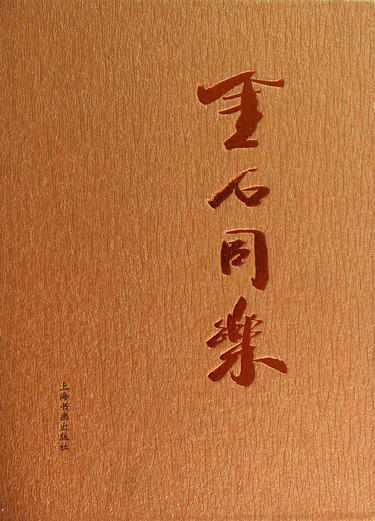 金石同樂
上海书画出版社